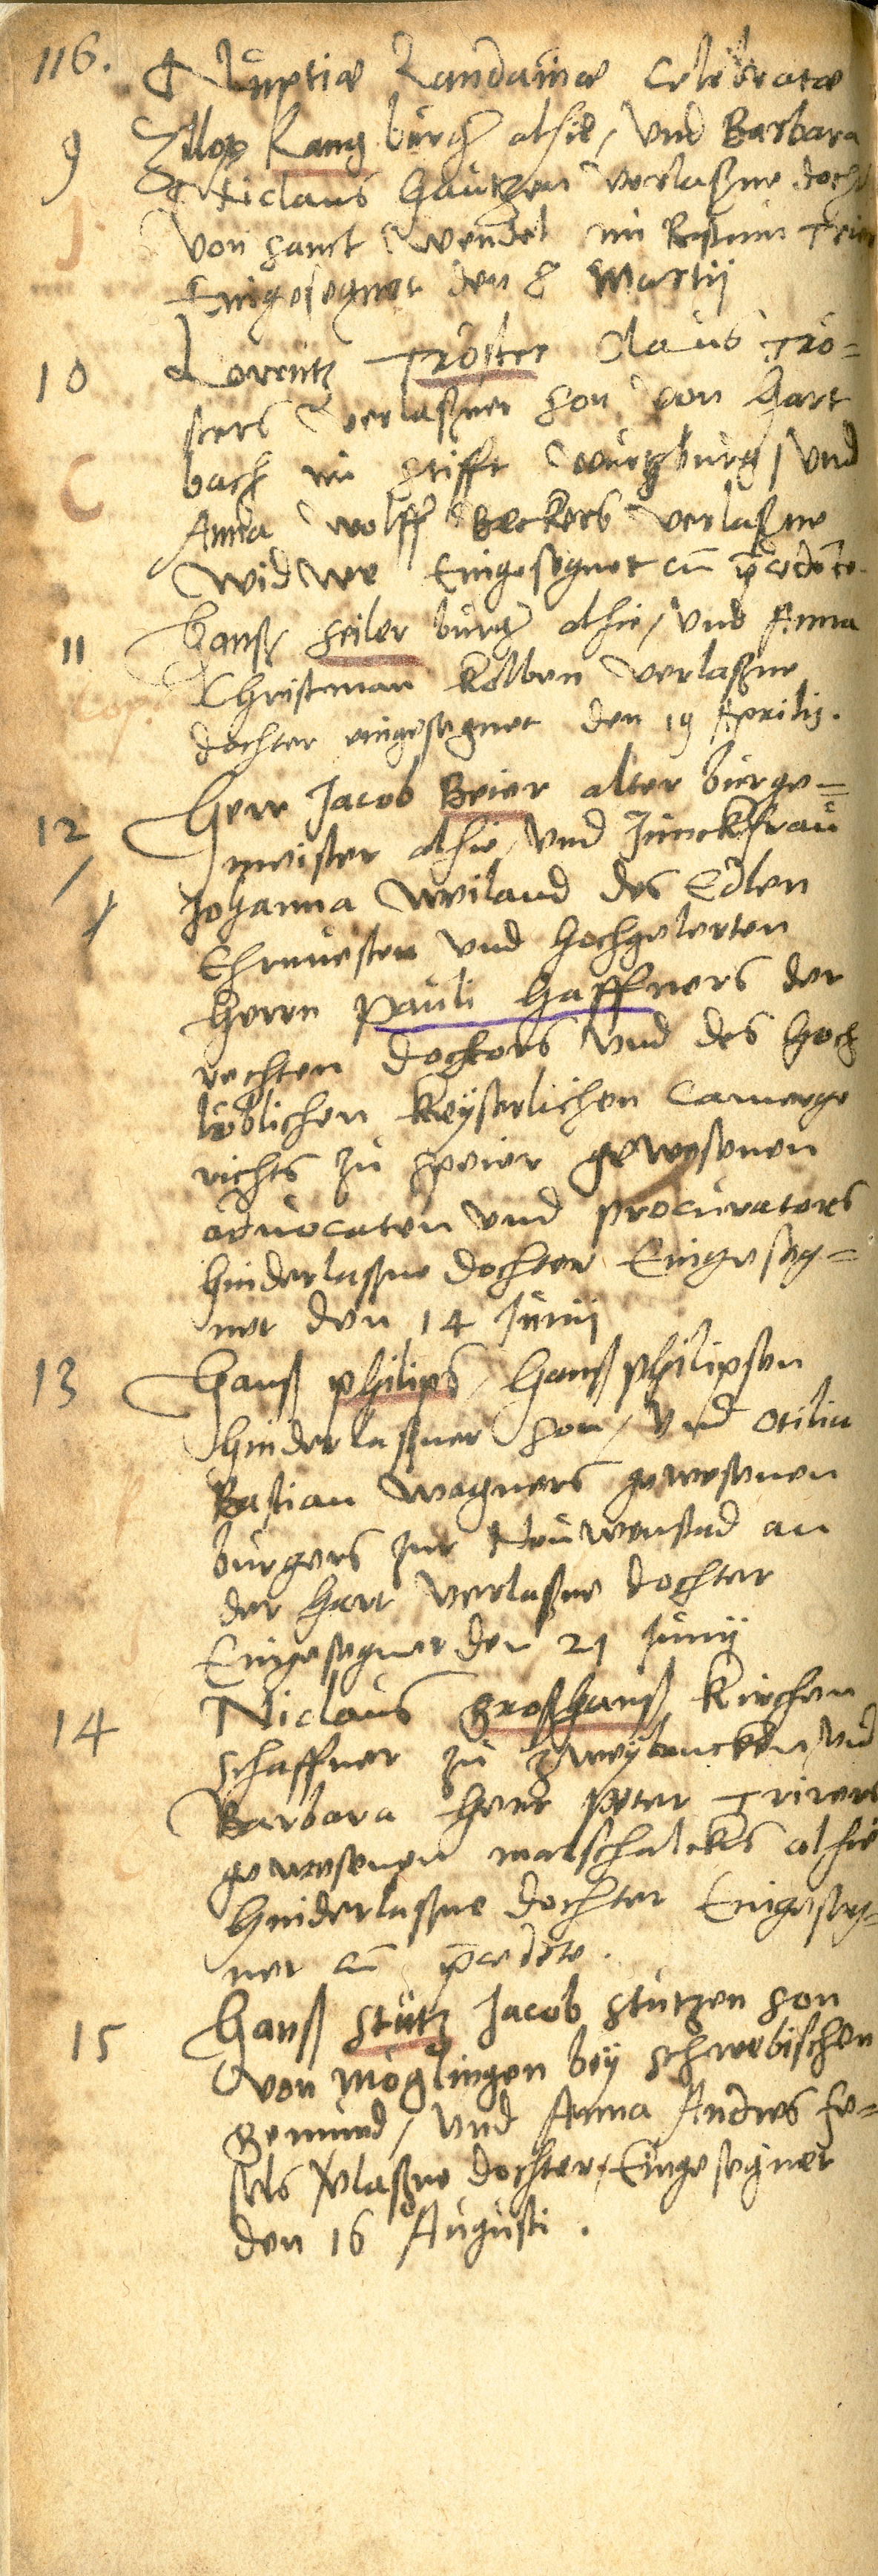 116. Nuptiæ Landauinæ celebratæ
9 Zilop Kang burg alhie, vnd Barbara
Niclaus Hautzen verlaßne docht
von sanct Wendel im Bistum Trier
Eingesegnet den 8 Martij
10 Lorentz Tröster Claus Trö=
sters verlaßner son von Hart
bach im stifft Wurtzburg, vnd
Anna Wolff Beckers verlaßne
Widwe Eingesegnet cū p̄cedēte.
11 Hanß Seiler burg alhie, vnd Anna
Christman Kolben verlaßne
dochter eingesegnet den 19 Aprilis.
12 Herr Jacob Beier alter burge=
meister alhie, vnd Junckfrau
Johanna weiland des Edlen
Ehrnuesten vnd hochgelerten
Herrn Pauli Haffners der
rechten doctors vnd des hoch
löblichen keyserlichen Camerge
richts zu speier gewesenen
aduocaten vnd procurators
hinderlaßne dochter Eingeseg=
net den 14 Junij
13 Hanß Philips, Hanß Philipsen
hinderlaßner son, vnd Otilia
Bastian Wagners gewesenen
burgers zur Neuwenstad an
der Hart verlaßne dochter
Eingesegnet den 21 Junij
14 Niclaus Großhanß Kirchen
schaffner zu Zweybrucken, vnd
Barbara Herr Peter Trirers
gewesenen marschalcks alhie
hinderlaßne dochter Eingeseg=
net cū p̄cedēte.
15 Hanß Stutz Jacob Stutzen son
von Möglingen bey schwebischen
Gemund, vnd Anna Andres Fe=
sels vlaßne dochter, Eingesegnet
den 16 Augusti.